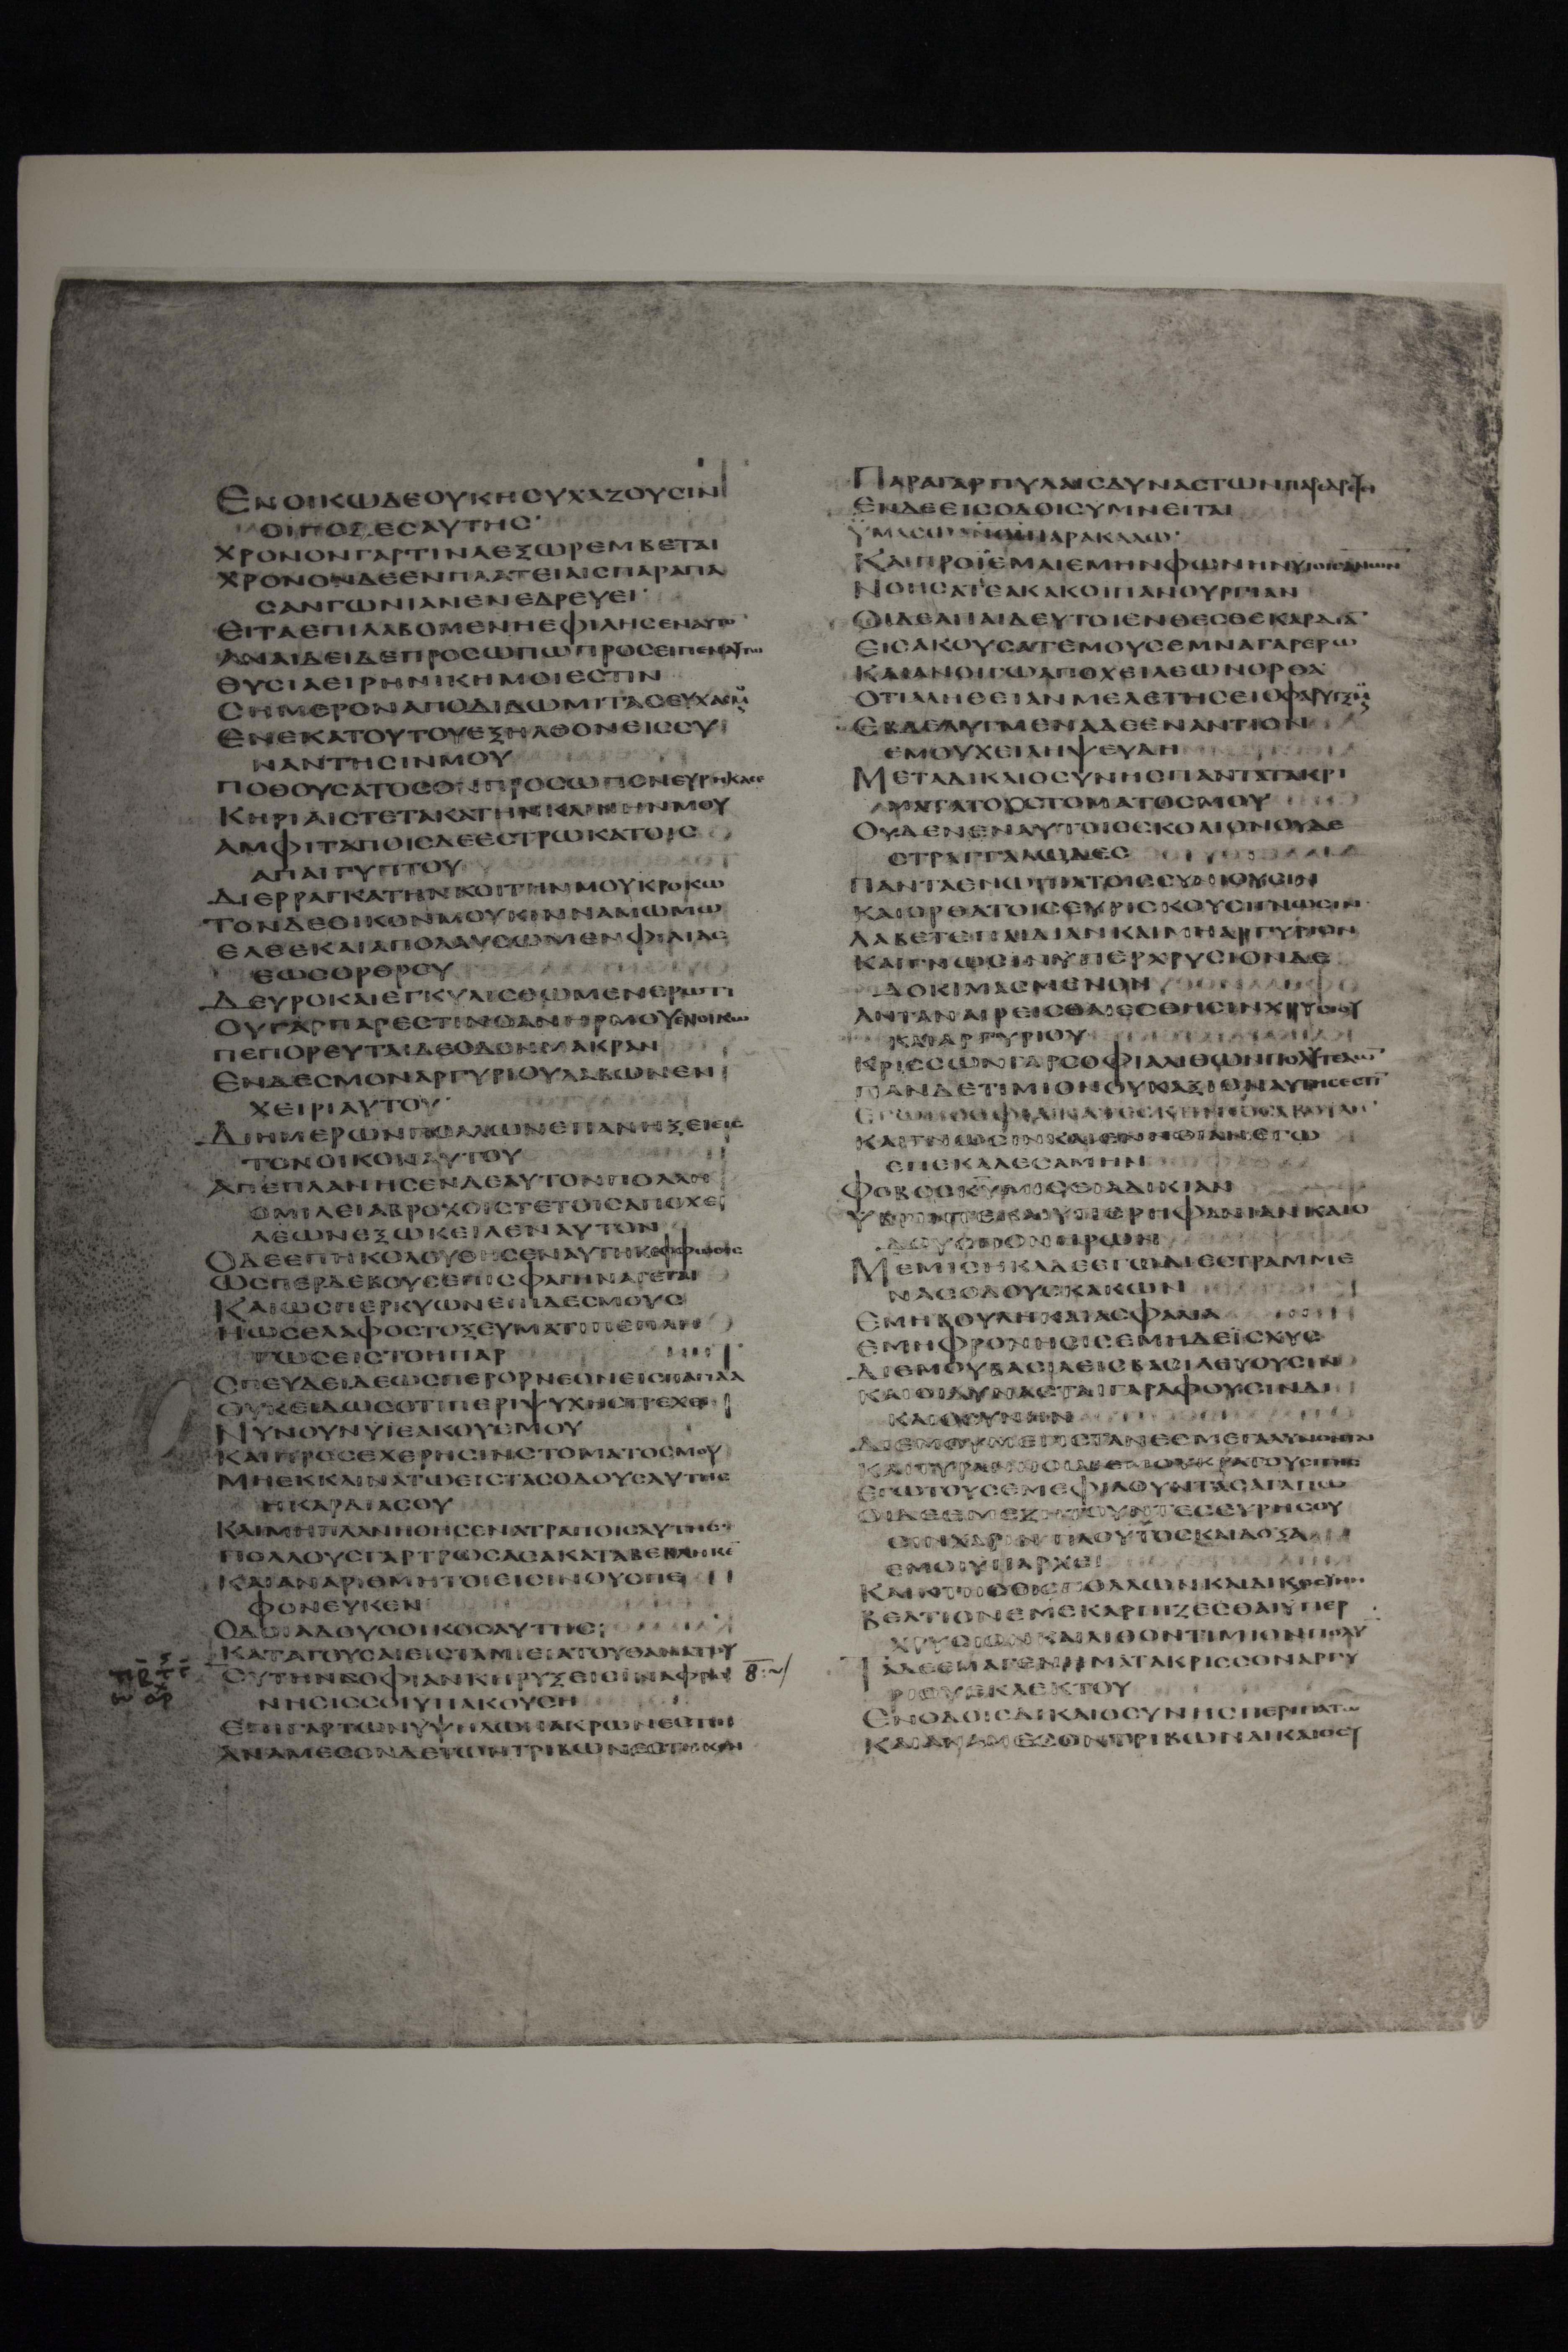 ΕΝΟΙΚΩΔΕΟΥΚΗΣΥΧΑΖΟΥCΙΝ
ΟΙΠΟΔΕCΑΥΤΗC
ΧΡΟΝΟΝΓΑΡΤΙΝΑΕΞΩΡΕΜΒΕΤΑΙ
ΧΡΟΝΟΝΔΕΕΝΠΛΑΤΕΙΑΙCΠΑΡΑΠΑ
CΑΝΓΩΝΙΑΝΕΝΕΔΡΕΥΕΙ
ΕΙΤΑΕΠΙΛΑΒΟΜΕΝΗΕΦΙΛΗCΕΝΑΥΤΟ
ΑΝΑΙΔΕΙΔΕΠΡΟCΩΠΩΠΡΟCΕΙΠΕΝΑΥΤΩ
ΘΥCΙΑΕΙΡΗΝΙΚΗΜΟΙΕCΤΙΝ
CΗΜΕΡΟΝΑΠΟΔΙΔΩΜΙΤΑCΕΥΧΑCΜΟΥ
ΕΝΕΚΑΤΟΥΤΟΥΕΞΗΛΘΟΝΕΙCCΥ
ΝΑΝΤΗCΙΝΜΟΥ
ΠΟΘΟΥCΑΤΟCΟΝΠΡΟCΩΠΟΝΕΥΡΗΚΑCΕ
ΚΗΡΙΑΙCΤΕΤΑΚΑΤΗΝΚΛΙΝΗΝΜΟΥ
ΑΜΦΙΤΑΠΟΙCΔΕΕCΤΡΩΚΑΤΟΙC
ΑΠΑΙΓΥΠΤΟΥ
ΔΙΕΡΡΑΓΚΑΤΗΝΚΟΙΤΗΝΜΟΥΚΡΟΚΩ
ΤΟΝΔΕΟΙΚΟΝΜΟΥΚΙΝΝΑΜΩΜΩ
ΕΛΘΕΚΑΙΑΠΟΛΑΥCΩΜΕΝΦΙΛΙΑC
ΕΩCΟΡΘΡΟΥ
ΔΕΥΡΟΚΑΙΕΓΚΥΛΙCΘΩΜΕΝΕΡΩΤΙ
ΟΥΓΑΡΠΑΡΕCΤΙΝΟΑΝΗΡΜΟΥΕΝΟΙΚΩ
ΠΕΠΟΡΕΥΤΑΙΔΕΟΔΟΝΜΑΚΡΑΝ
ΕΝΔΕCΜΟΝΑΡΓΥΡΙΟΥΛΑΒΩΝΕΝ
ΧΕΙΡΙΑΥΤΟΥ
ΔΙΗΜΕΡΩΝΠΟΛΛΩΝΕΠΑΝΗΞΕΙΕΙC
ΤΟΝΟΙΚΟΝΑΥΤΟΥ
ΑΠΕΠΛΑΝΗCΕΝΔΕΑΥΤΟΝΠΟΛΛΗ
ΟΜΙΛΕΙΑΒΡΟΧΟΙCΤΕΤΟΙCΑΠΟΧΕΙ
ΛΕΩΝΕΞΩΚΕΙΛΕΝΑΥΤΟΝ
ΟΔΕΕΠΗΚΟΛΟΥΘΗCΕΝΑΥΤΗΚΕΠΦΩΘΕΙC
ΩCΠΕΡΔΕΒΟΥCΕΠΙCΦΑΓΗΝΑΓΕΤΑΙ
ΚΑΙΩCΠΕΡΚΥΩΝΕΠΙΔΕCΜΟΥC
ΗΩCΕΛΑΦΟCΤΟΞΕΥΜΑΤΙΠΕΠΛΗ
ΓΩCΕΙCΤΟΗΠΑΡ
CΠΕΥΔΕΙΔΕΩCΠΕΡΟΡΝΕΟΝΕΙCΠΑΓΙΔΑ
ΟΥΚΕΙΔΩCΟΤΙΠΕΡΙΨΥΧΗCΤΡΕΧΕΙ
ΝΥΝΟΥΝΥΪΕΑΚΟΥΕΜΟΥ
ΚΑΙΠΡΟCΕΧΕΡΗCΙΝCΤΟΜΑΤΟCΜΟΥ
ΜΗΕΚΚΛΙΝΑΤΩΕΙCΤΑCΟΔΟΥCΑΥΤΗC
ΗΚΑΡΔΙΑCΟΥ
ΚΑΙΜΗΠΛΑΝΗΘΗCΕΝΑΤΡΑΠΟΙCΑΥΤΗC
ΠΟΛΛΟΥCΓΑΡΤΡΩCΑCΑΚΑΤΑΒΕΒΛΗΚΕ
ΚΑΙΑΝΑΡΙΘΜΗΤΟΙΕΙCΙΝΟΥCΠΕ
ΦΟΝΕΥΚΕΝ
ΟΔΟΙΑΔΟΥΟΟΙΚΟCΑΥΤΗC
ΚΑΤΑΓΟΥCΑΙΕΙCΤΑΜΙΕΙΑΤΟΥΘΑΝΑΤΟΥ
CΥΤΗΝCΟΦΙΑΝΚΗΡΥΞΕΙCΙΝΑΦΡΟ
ΝΗCΙCCΟΙΥΠΑΚΟΥCΗ
ΕΠΙΓΑΡΤΩΝΥΨΗΛΩΝΑΚΡΩΝΕCΤΙΝ
ΑΝΑΜΕCΟΝΔΕΤΩΝΤΡΙΒΩΝΕCΤΗΚΕΝ
8
ΠΑΡΑΓΑΡΠΥΛΑΙCΔΥΝΑCΤΩΝΠΑΡΕΔΡΕΥΕΙ
ΕΝΔΕΕΙCΟΔΟΙCΥΜΝΕΙΤΑΙ
ΫΜΑCΩΑΝΟΙΠΑΡΑΚΑΛΩ
ΚΑΙΠΡΟΪΕΜΑΙΕΜΗΝΦΩΝΗΝΥΙΟΙCΑΝΩΝ
ΝΟΗCΑΤΕΑΚΑΚΟΙΠΑΝΟΥΡΓΙΑΝ
ΟΙΔΕΑΠΑΙΔΕΥΤΟΙΕΝΘΕCΘΕΚΑΡΔΙΑ
ΕΙCΑΚΟΥCΑΤΕΜΟΥCΕΜΝΑΓΑΡΕΡΩ
ΚΑΙΑΝΟΙΓΩΑΠΟΧΕΙΛΕΩΝΟΡΘΑ
ΟΤΙΑΛΗΘΕΙΑΝΜΕΛΕΤΗCΕΙΟΦΑΡΥΓΞΜΟΥ
ΕΒΔΕΛΥΓΜΕΝΑΔΕΕΝΑΝΤΙΟΝ
ΕΜΟΥΧΕΙΛΗΨΕΥΔΗ
ΜΕΤΑΔΙΚΑΙΟCΥΝΗCΠΑΝΤΑΤΑΚΡΙ
ΜΑΤΑΤΟΥCΤΟΜΑΤΟCΜΟΥ
ΟΥΔΕΝΕΝΑΥΤΟΙCCΚΟΛΙΟΝΟΥΔΕ
CΤΡΑΓΓΑΛΙΩΔΕC
ΠΑΝΤΑΕΝΩΠΙΑΤΟΙCCΥΝΙΟΥCΙΝ
ΚΑΙΟΡΘΑΤΟΙCΕΥΡΙCΚΟΥCΙΓΝΩCΙΝ
ΛΑΒΕΤΕΠΑΙΔΙΑΝΚΑΙΜΗΑΡΓΥΡΙΟΝ
ΚΑΙΓΝΩCΙΝΥΠΕΡΧΡΥCΙΟΝΔΕ
ΔΟΚΙΜΑCΜΕΝΟΝ
ΑΝΤΑΝΑΙΡΕΙCΘΑΙCΘΗCΙΝΧΡΥCΙΟΥ
ΚΑΙΑΡΓΥΡΙΟΥ
ΚΡΙCCΩΝΓΑΡCΟΦΙΑΛΙΘΩΝΠΟΛΥΤΕΛΩΝ
ΠΑΝΔΕΤΙΜΙΟΝΟΥΚΑΞΙΟΝΑΥΤΗCΕCΤΙ
ΚΑΙΓΝΩCΙΝΚΑΙΕΝΝΟΙΑΝΕΓΩ
ΕΠΕΚΑΛΕCΑΜΗΝ
ΦΟΒΟCΚΥΜΙCΕΙΑΔΙΚΙΑΝ
ΥΒΡΙΝΤΕΚΑΙΥΠΕΡΗΦΑΝΙΑΝΚΑΙΟ
ΔΟΥCΠΟΝΗΡΩΝ
ΜΕΜΙCΗΚΑΔΕΕΓΩΔΙΕCΤΡΑΜΜΕ
ΝΑCΟΔΟΥCΚΑΚΩΝ
ΕΜΗΒΟΥΛΗΚΑΙΑCΦΑΛΙΑ
ΕΜΗΦΡΟΝΗCΙCΕΜΗΔΕΪCΧΥC
ΔΙΕΜΟΥΒΑCΙΛΕΙCΒΑCΙΛΕΥΟΥCΙΝ
ΚΑΙΟΙΔΥΝΑCΤΑΙΓΡΑΦΟΥCΙΝΔΙ
ΚΑΙΟCΥΝΗΝ
ΔΙΕΜΟΥΜΕΓΙCΤΑΝΕCΜΕΓΑΛΥΝΟΝΤΑΙ
ΚΑΙΤΥΡΑΝΝΟΙΔΙΕΜΟΥΚΡΑΤΟΥCΙΓΗC
ΕΓΩΤΟΥCΕΜΕΦΙΛΟΥΝΤΑCΑΓΑΠΩ
ΟΙΔΕΕΜΕΖΗΤΟΥΝΤΕCΕΥΡΗCΟΥ
CΙΝΧΑΡΙΝΠΛΟΥΤΟCΚΑΙΔΟΞΑ
ΕΜΟΙΥΠΑΡΧΕΙ
ΚΑΙΚΤΗCΙCΠΟΛΛΩΝΚΑΙΔΙΚΑΙΟCΥΝΗ
ΒΕΛΤΙΟΝΕΜΕΚΑΡΠΙΖΕCΘΑΙΥΠΕΡ
ΧΡΥCΙΟΝΚΑΙΛΙΘΟΝΤΙΜΙΟΝΠΟΛΥ
ΤΑΔΕΕΜΑΓΕΝΗΜΑΤΑΚΡΙCCΟΝΑΡΓΥ
ΡΙΟΥΕΚΛΕΚΤΟΥ
ΕΝΟΔΟΙCΔΙΚΑΙΟCΥΝΗCΠΕΡΙΠΑΤΩ
ΚΑΙΑΝΑΜΕCΟΝΤΡΙΒΩΝΔΙΚΑΙΟCΥ